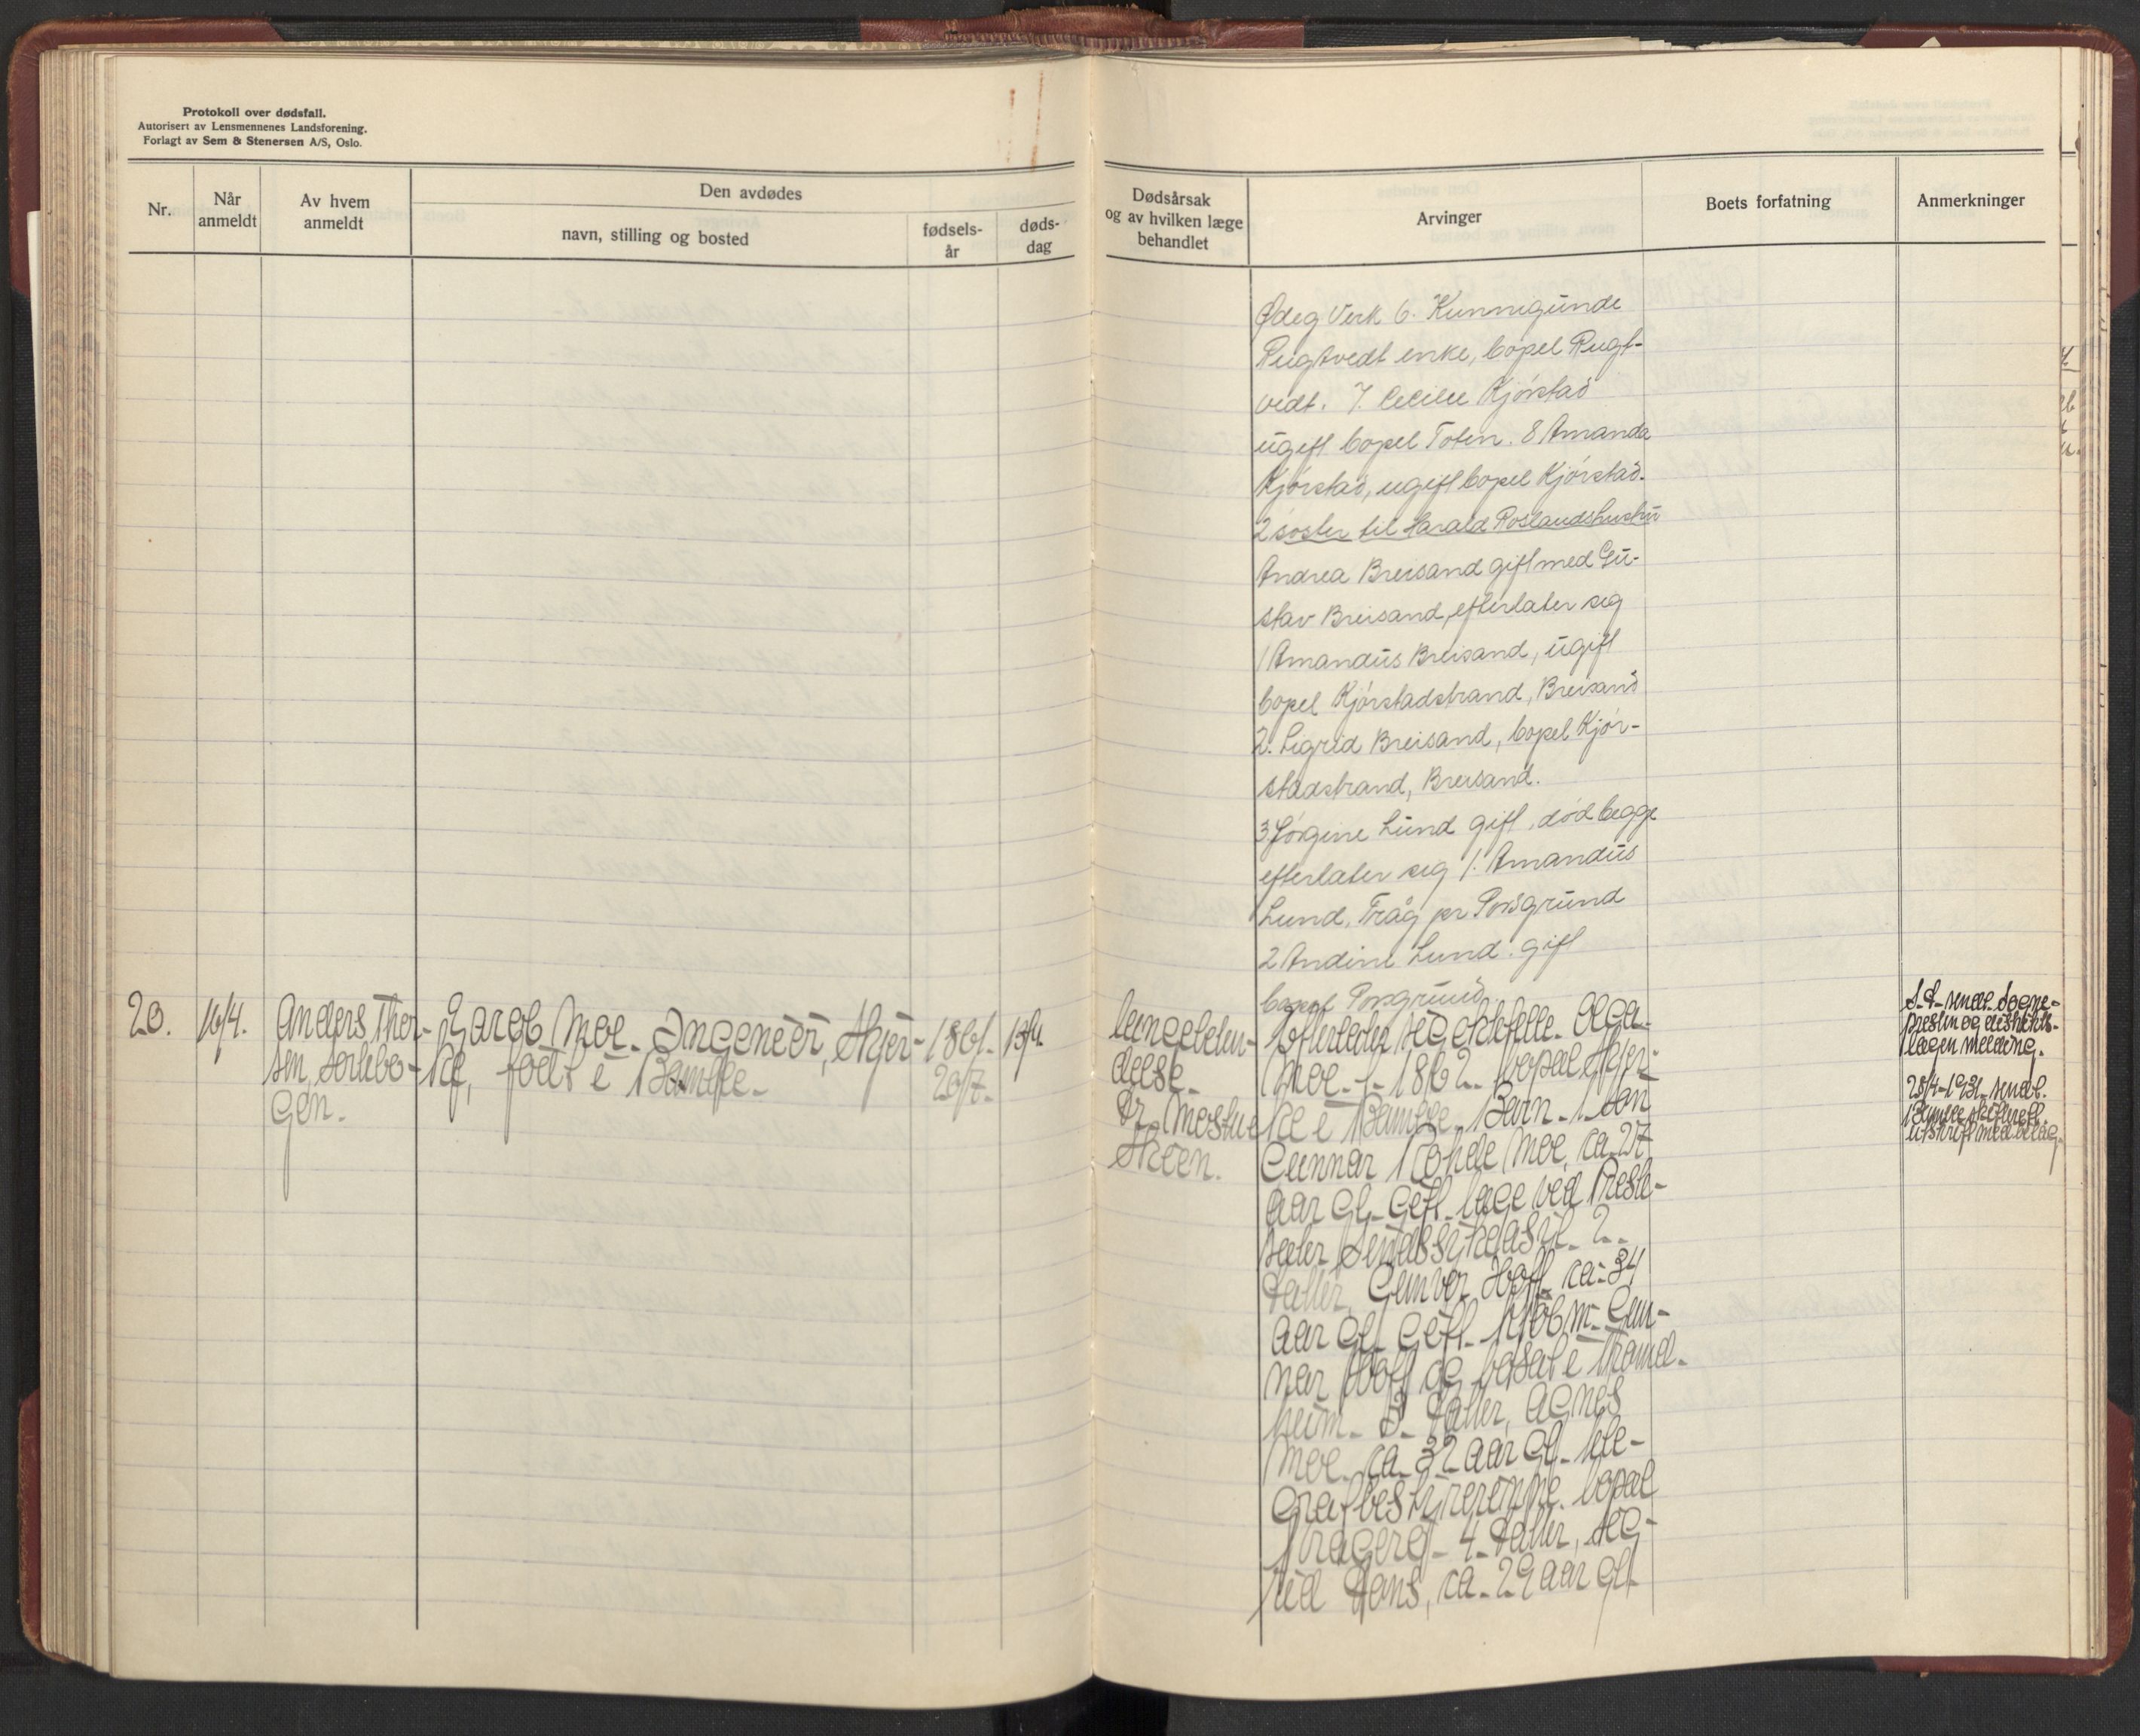 Protokoll over dødsfall.
Autorisert av Lensmennenes Landsforening.
Forlagt av Sem & Stenersen A/S, Oslo.
Nr.
Når anmeldt
Av hvem anmeldt
Den avdødes
navn, stilling og bosted
fødsels-år
døds-dag
Dødsårsak og av hvilken læge behandlet
Arvinger
Boets forfatning
Anmerkninger
Ødeg Verk 6. Kunnegunde
Rugtvedt enke, bopel Rugt-
vedt. 7. Cecilie Kjørstad
ugift bopel Toten. 8 Amanda
Kjørstad, ugift bopel Kjørstad.
2 søster til Harald Roslandshustru
Andrea Breisand gift med Gu-
stav Breisand, efterlater seg
1 Amandus Breisand, ugift
bopel Kjørstadstrand, Breisand
2. Sigrid Breisand, bopel Kjør-
stadstrand, Breisand.
3 Jørgine Lund gift, død begge
efterlater seg 1. Amandus
Lund, Tråg pr Porsgrund
2 Andine Lund. gift
bopel Porsgrund
20.
16/4.
Anders Thor-
sen,
gen.
Jacob Moe. Ingeniør, Skjer-
ke, født i Bamble.
1861.
20/7.
13/4.
lungebeten-
delse.
Dr. Mostue
Skien.
Efterleder seg ektefelle Olga
Moe. f. 1862. bopæl Skjer-
ke i Bamble. Barn. 1. søn
Gunnar Rohde Moe, ca. 27
aar gl. gift. læge ved Preste-
seter Sindssykeasyl. 2.
datter, Gunvor Hoff. ca. 34
aar gl. gift. Kjøbm. Gun-
nar Hoff og bosat i Trond-
heim. 3. datter, Agnes
Moe. ca. 32 aar gl. tele-
grafbestyrerinne. bopæl
Kragerø. 4. datter, Sig-
rid Dons, ca. 29 aar gl.
S.d. sendt Sogne-
presten og distrikts-
lægen melding.
28/4-1931. sendt.
Bamble skifterett.
utskrift med bilag.